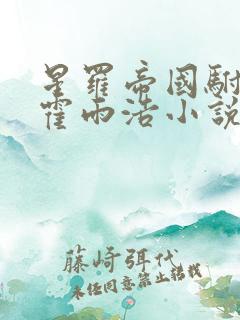 星羅帝國駙
霍雨浩小說
藤崎弭代
未任同意禁止轉載